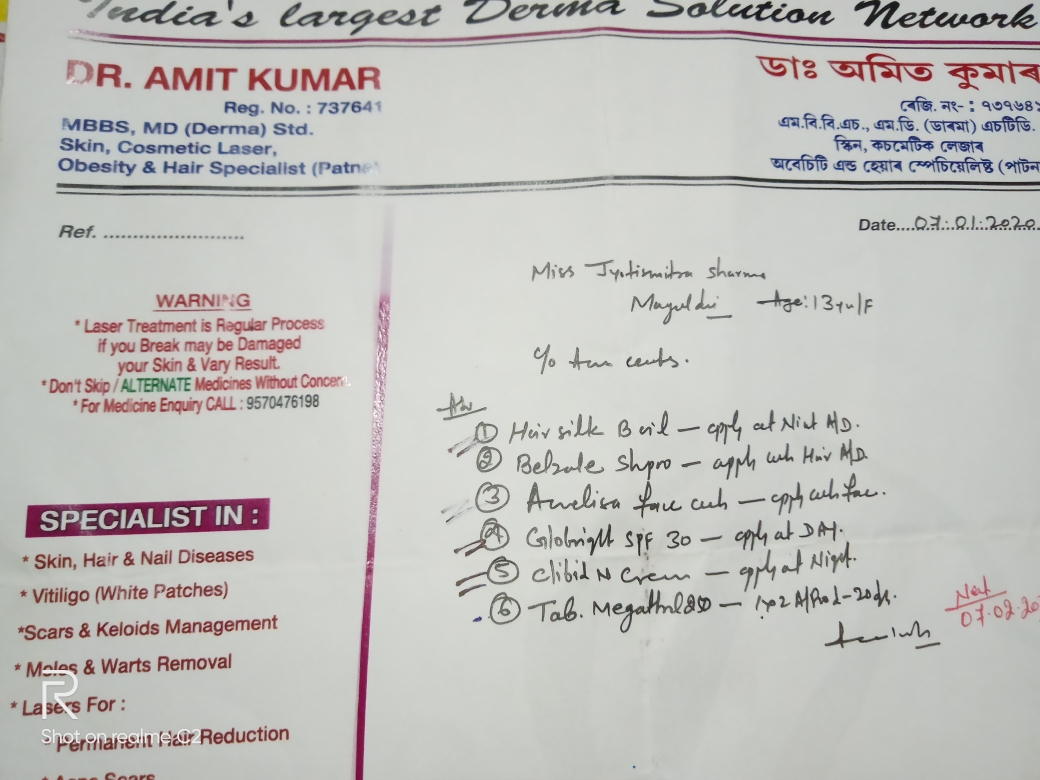 India's largest Derma Solution Network
DR. AMIT KUMAR
Reg. No. : 737641
MBBS, MD (Derma) Std.
Skin, Cosmetic Laser,
Obesity & Hair Specialist (Patna
ডাঃ অমিত কুমাৰ
ৰেজি. নং- : ৭৩৭৬৪১
এম.বি.বি.এচ., এম.ডি. (ডাৰমা) এচটিডি.
স্কিন, কচমেটিক লেজাৰ
অবেচিটি এণ্ড হেয়াৰ স্পেচিয়েলিষ্ট (পাটনা
Ref. ........................
Date....07.:.01.:2020.
WARNING
* Laser Treatment is Regular Process
if you Break may be Damaged
your Skin & Vary Result.
* Don't Skip / ALTERNATE Medicines Without Concern.
* For Medicine Enquiry CALL : 9570476198
Miss Jyotismitra Sharma
Age: 13 yrs/F
① Hair silk - apply at Night A/D.
② Shpoo - apply Hair A/D.
③ face - apply face.
④ Globright SPF 30 - apply at DAY.
⑤ Clibid N Cream - apply at Night.
⑥ Tab. - 20 ds.
Next
07.02.20
SPECIALIST IN :
* Skin, Hair & Nail Diseases
* Vitiligo (White Patches)
*Scars & Keloids Management
* Moles & Warts Removal
* Lasers For :
* Permanent Hair Reduction
* Acne Scars
R
Shot on realme C2